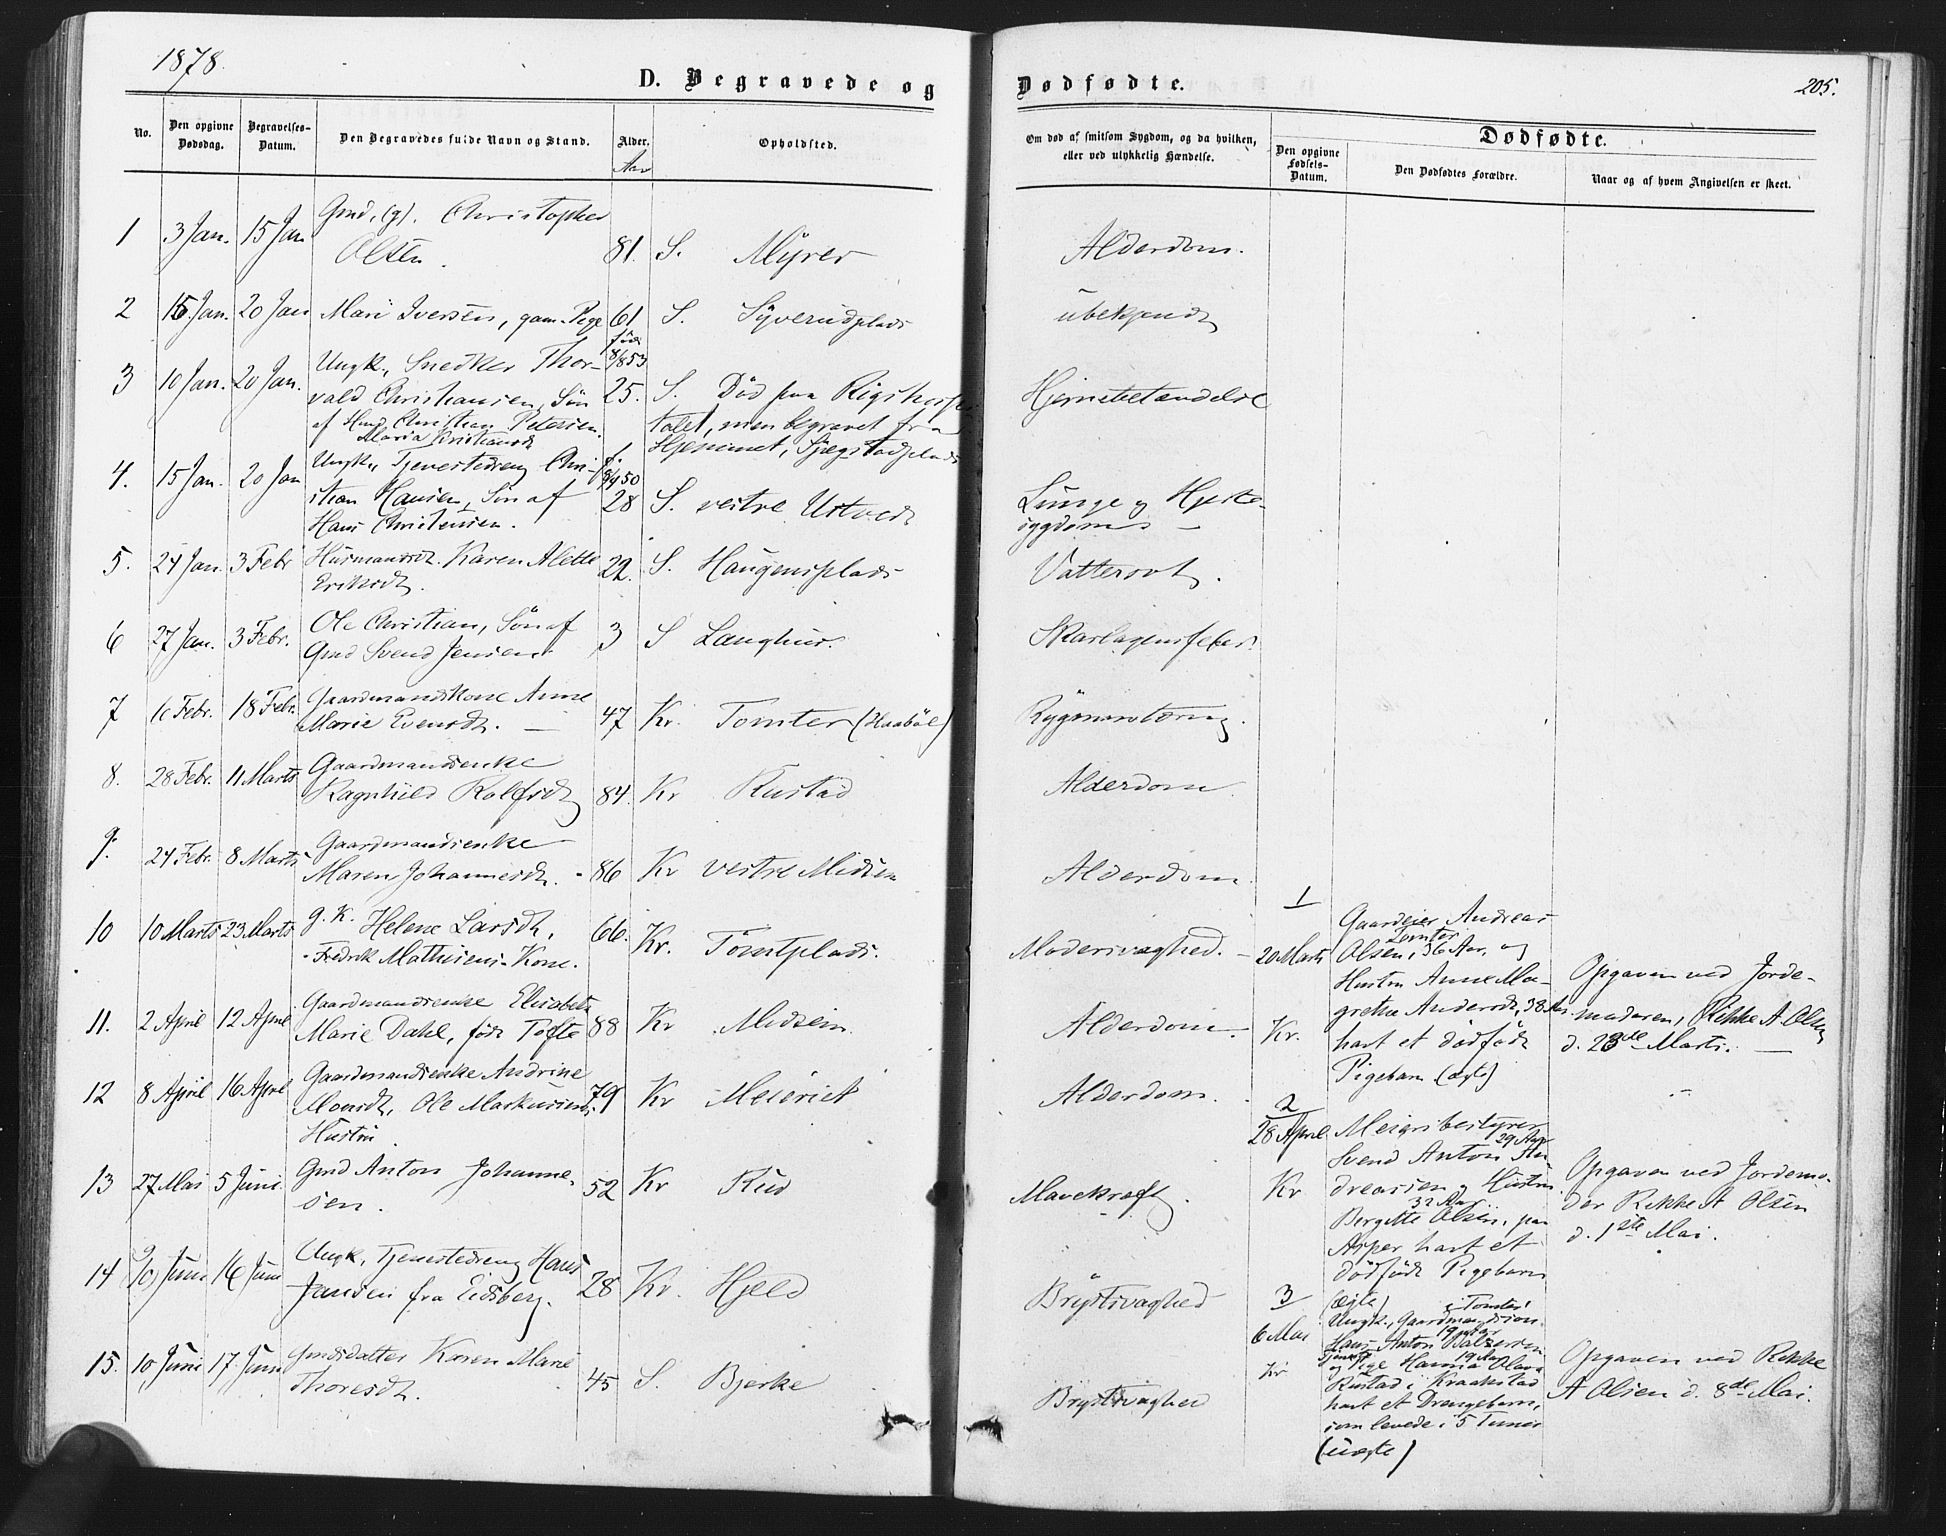 1878.
205.
D. Begravede og
Dødfødte.
No.
Den opgivne
Dødsdag.
Begravelses-
Datum.
Den Begravedes fulde Navn og Stand.
Alder.
Aar
Opholdsted.
Om død af smitsom Sygdom, og da hvilken,
eller ved ulykkelig Hændelse.
Dødfødte.
Den opgivne
Fødsels-
Datum.
Den Dødfødtes Forældre.
Naar og af hvem Angivelsen er skeet.
Gmd, (g). Christopher
1 3 Jan. 15 Jan
Olsen. 81. S. Myrer Alderdom.
2 15 Jan. 20 Jan Mari Iversen, gam. Pige 61 S. Syverudplads ubekjendt
født
8/853
Ungk., Snedker Thor-
3 10 Jan. 20 Jan.
vald Christiansen, Søn 25. S. Død paa Rigshospi Hjernebetændelse
af Hmd Christian Petersen. talet, men begravet fra
Maria Kristiansdt Hjemmet,
Ungk., Tjenestedreng Chri- f.
4. 15 Jan. 20 Jan
stian Hansen, Søn af 28 S. vestre Ustvedt Lunge og Hjerte-
Hans Christensen. sygdom
5. 24 Jan. 3 Febr Husmandsdt. Karen Alette 22. S. Haugensplads Vattersot.
Eriksdt.
Ole Christian, Søn af
6 27 Jan. 3 Febr. 3 S Langhus. Skarlagensfeber
Gmd Svend Jensen.
7 Febr. 18 Febr. Gaardmandskone Anne
Marie Evensdt. — 47 Kr. Tomter (Haabøl) Rygmarvtæring.
8. 28 Febr. 11 Marts Gaardmandsenke
Ragnhild Rolfsdt 84. Kr Rustad Alderdom.
9. 24 Febr. 8 Marts Gaardmandsenke
Maren Johannesdt. 86 Kr vestre Midsem Alderdom.
10 10 Marts 23 Marts g. K. Helene Larsdt, 66. Kr. Tomtplads. Modersvaghed.
Fredrik Mathisens Kone.
1
20 Marts
Kr.
Gaardeier Andreas
Tomter
Olsen, 36 Aar, og
Hustru Anne Mar-
grethe Andersdt, 38 Aar
havt et dødfødt
Pigebarn (ægte)
Opgaven ved Jorde-
moderen, Rikke A. Olsen
d. 23de Marts. —
11. 2 April 12 April Gaardmandsenke Elisabeth
Marie Dahl, født Tofte 88 Kr Midsem. Alderdom.
12 8 April 16 April Gaardmandsenke Andrine
Monsdt, Ole Markusens 79 Kr Meieriet Alderdom.
Hustru.
2
28 April
Kr
Meieribestyrer
29 Aar
Svend Anton An
dreasen og Hustru
32 Aar
Bergitte Olsen, paa
Asper havt et
dødfødt Pigebarn
(ægte)
Opgaven ved Jordemo-
der Rikke A Olsen
d. 1ste Mai.
13 27 Mai 5 Juni Gmd Anton Johanne-
sen. 52 Kr Rud Mavekræft.
14 10 Juni 16 Juni Ungk., Tjenestedreng Hans
Jansen fra Eidsberg. 28 Kr. Hjeld Brystsvaghed
15. 10 Juni 17 Juni Gmdsdatter Karen Marie
Thoresdt. 45 S. Bjerke Brystsvaghed
3
6 Mai
Kr
i Tomter
Ungk., Gaardmandssøn
19 Aar
Hans Anton Balzersen
19 Aar
og Pige Hanna Olava
Rustad i Kraakstad
havt et Drengebarn,
som levede i 5 Timer
(uægte)
Opgaven ved Rikke
A Olsen d. 8de Mai.